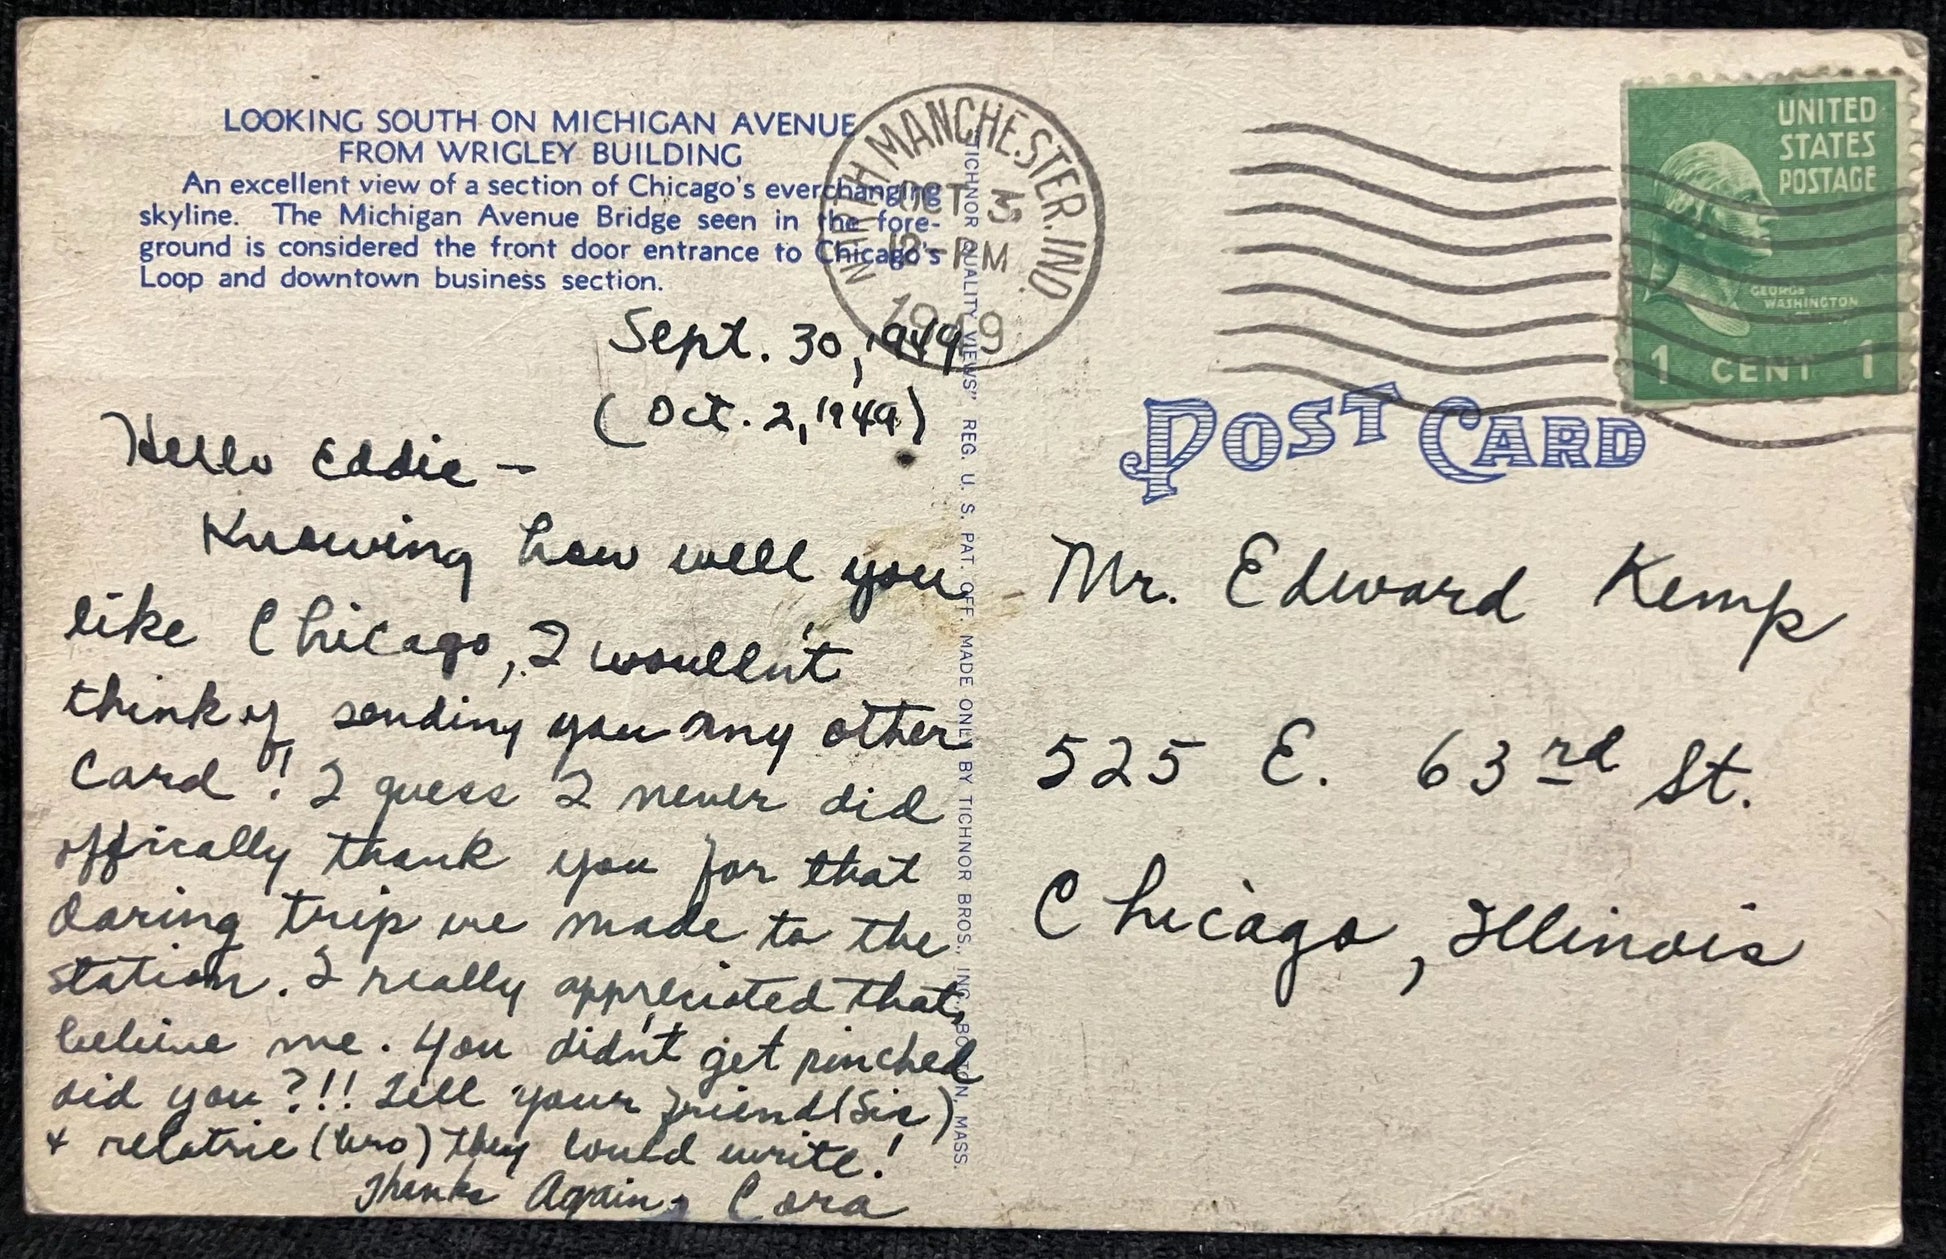 LOOKING SOUTH ON MICHIGAN AVENUE
FROM WRIGLEY BUILDING
An excellent view of a section of Chicago's everchanging
skyline. The Michigan Avenue Bridge seen in the fore-
ground is considered the front door entrance to Chicago's
Loop and downtown business section.
Sept. 30, 1949
(Oct. 2, 1949)
Hello Eddie -
Knowing how well you
like Chicago, I wouldn't
think of sending you any other
card! I guess I never did
offically thank you for that
daring trip we made to the
station. I really appreciated that,
believe me. You didn't get pinched
did you?!!! Tell your friend (Sis)
+ relative (bro) they could write!
Thanks Again, Cora
"TICHNOR QUALITY VIEWS" REG. U. S. PAT. OFF. MADE ONLY BY TICHNOR BROS., INC., BOSTON, MASS.
NORTH MANCHESTER. IND.
OCT 3
12-PM
1949
UNITED
STATES
POSTAGE
GEORGE
WASHINGTON
1 CENT 1
POST CARD
Mr. Edward Kemp
525 E. 63rd St.
Chicago, Illinois